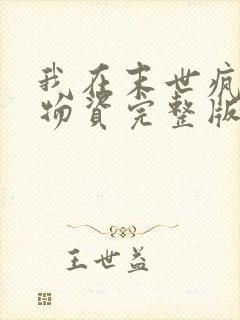 我在末世疯
物资完整版
王世益